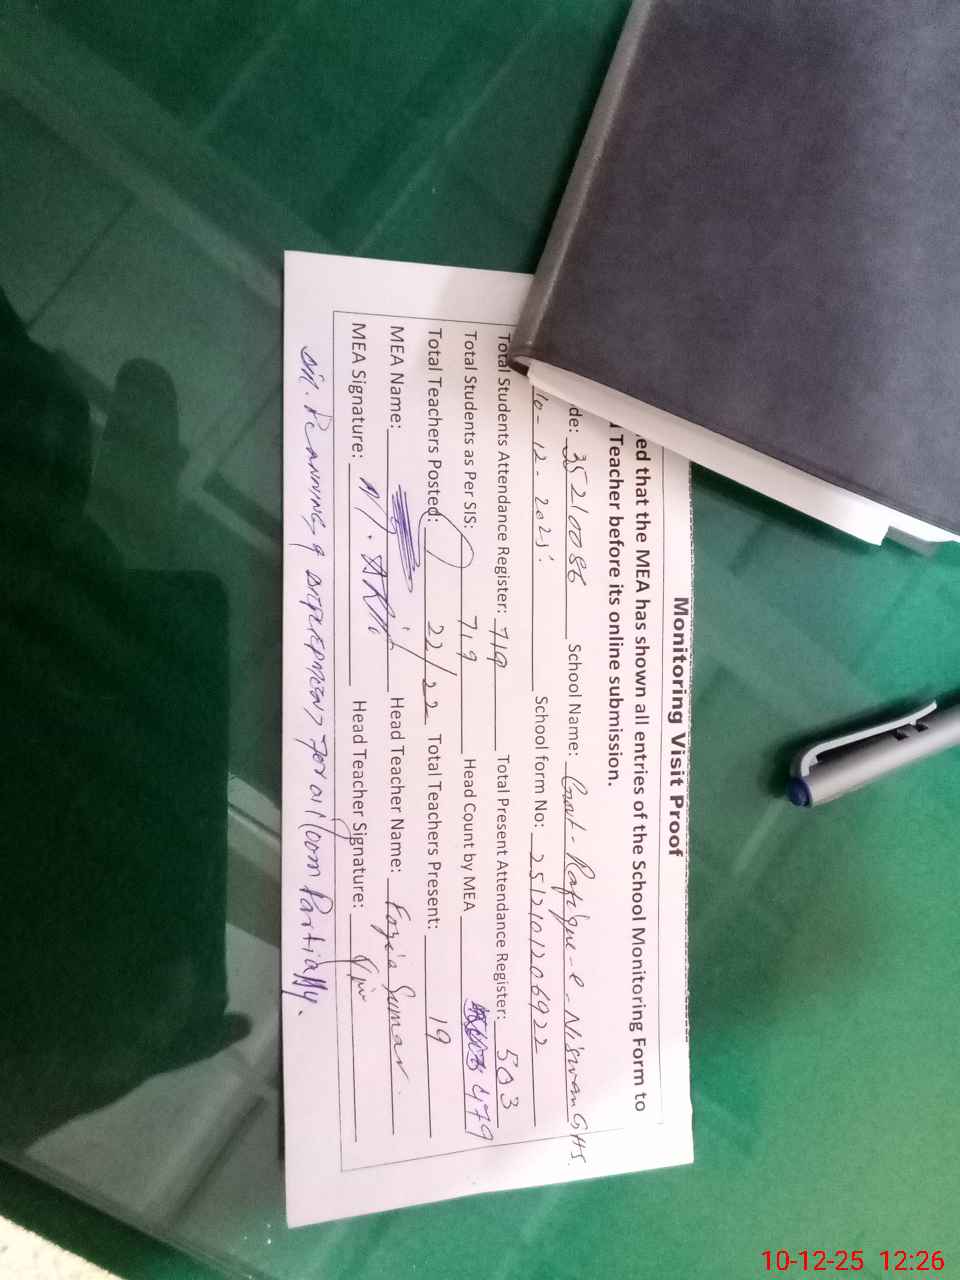 Monitoring Visit Proof
ed that the MEA has shown all entries of the School Monitoring Form to
Teacher before its online submission.
de: 35210086 School Name: Govt. Rafique-e-Niswan GHS.
10-12-2025. School form No: 2512101206922
Total Students Attendance Register: 719 Total Present Attendance Register: 503
Total Students as Per SIS: 719 Head Count by MEA 479
Total Teachers Posted: 22/22 Total Teachers Present: 19
MEA Name: Head Teacher Name: Fozia
MEA Signature: Head Teacher Signature:
Partially.
10-12-25 12:26